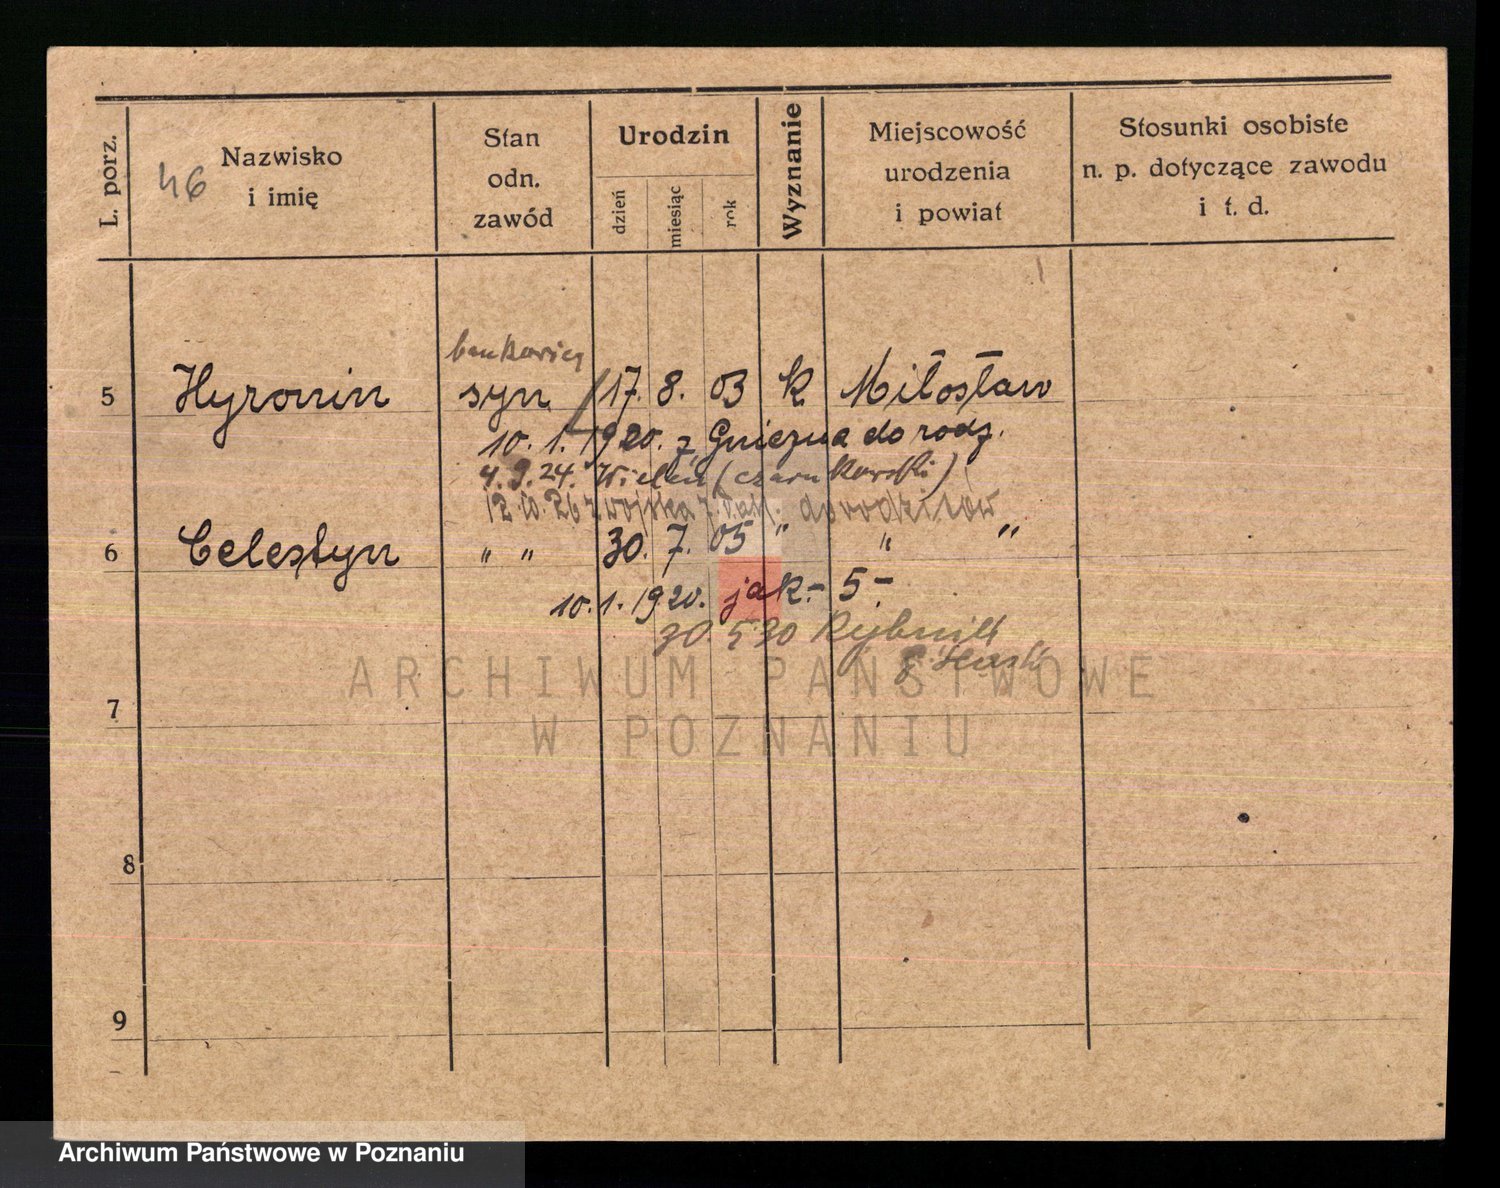 L. porz.
46
Nazwisko
i imię
Stan
odn.
zawód
Urodzin
dzień
miesiąc
rok
Wyznanie
Miejscowość
urodzenia
i powiat
Stosunki osobiste
n. p. dotyczące zawodu
i t. d.
5 Hyronin syn 17. 8. 03 k Miłosław
10. 1. 1920. z Gniezna do rodz.
4. 9. 24. Wieleń (czarnkowski)
12. 10. 26 z wojska do rodziców
6 Celestyn " " 30. 7. 05 " " "
10. 1. 1920. jak.- 5-
30 5 30 Rybnik
7
ARCHIWUM PAŃSTWOWE
W POZNANIU
8
9
Archiwum Państwowe w Poznaniu